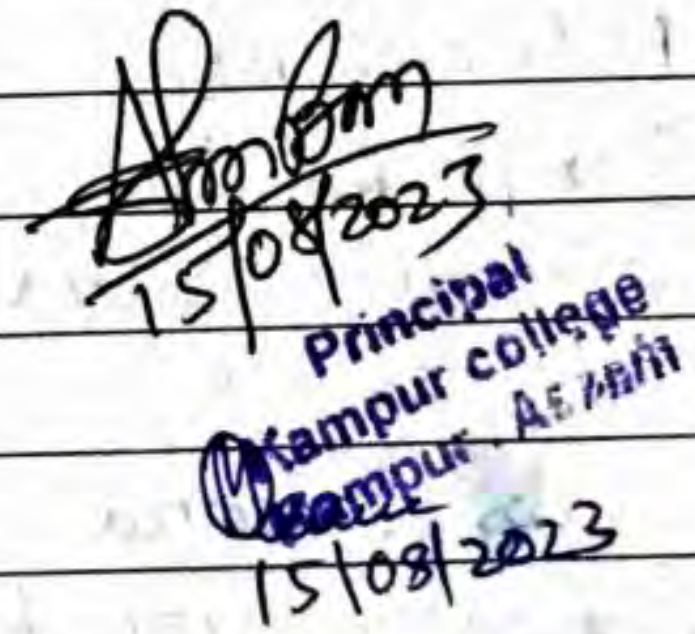 15/08/2023
Principal
Kampur college
Kampur. Assam
15/08/2023